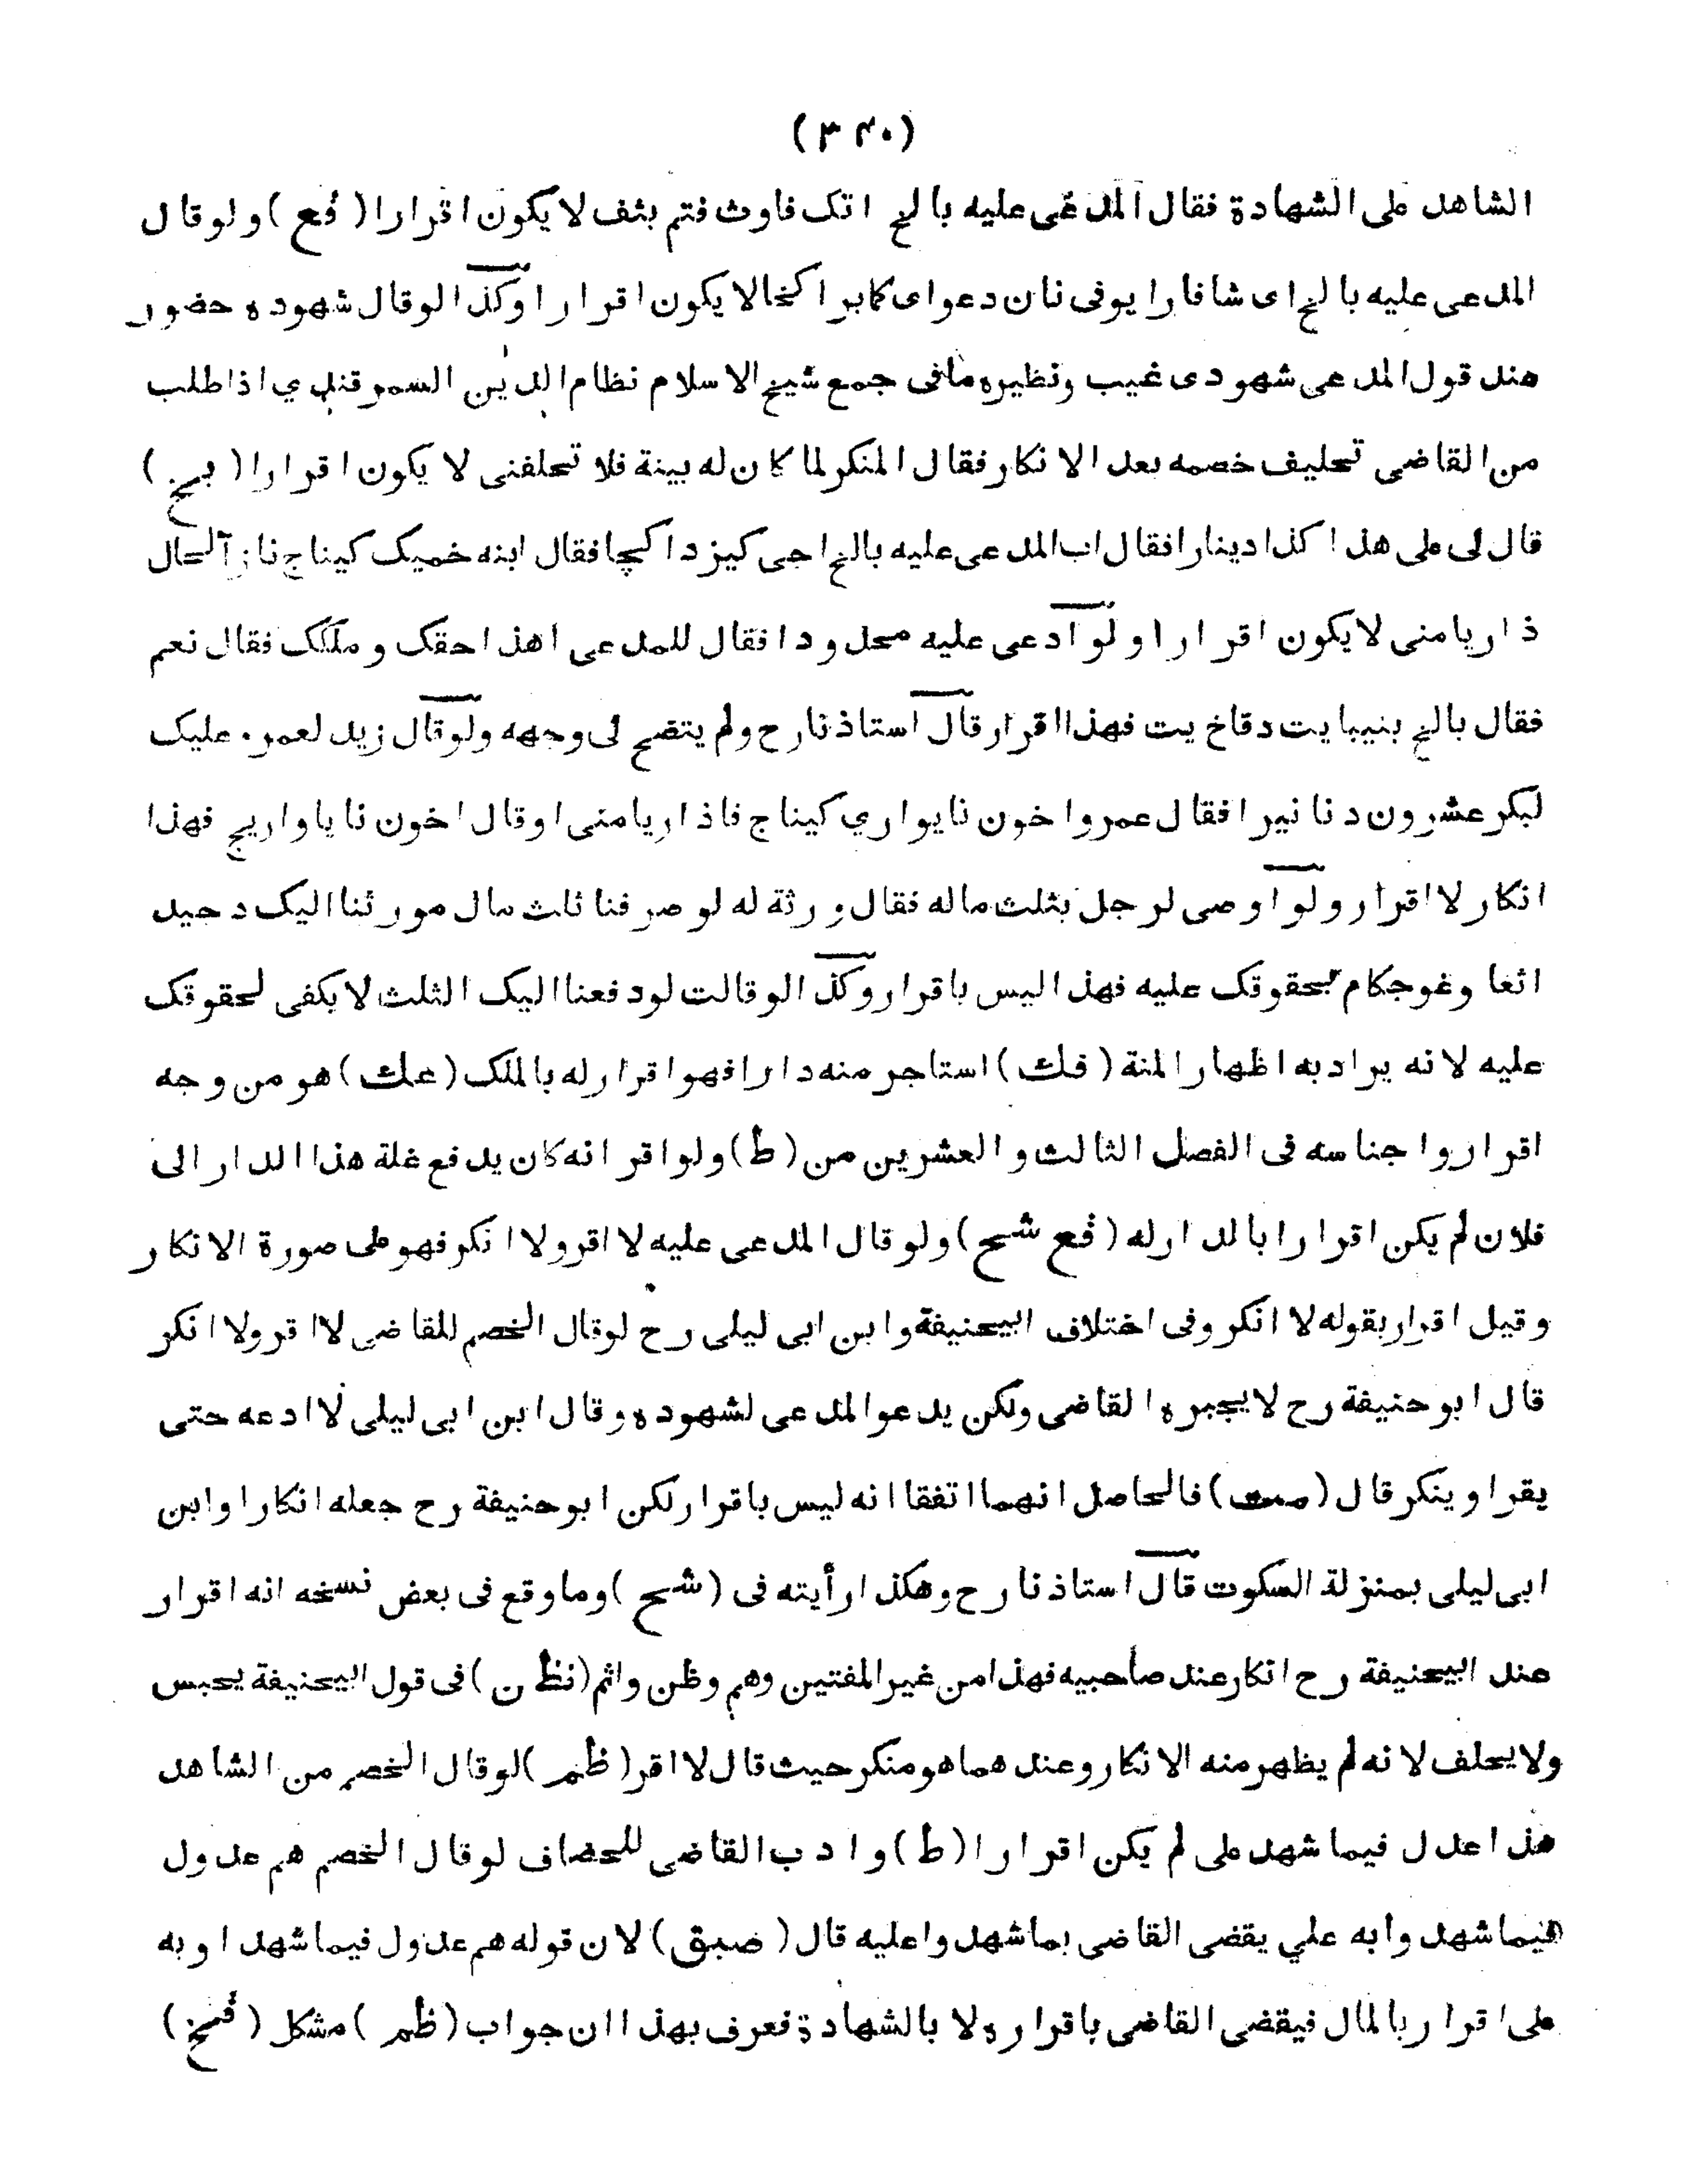 (٣٤٠)
الشاهد على الشهادة فقال المدعى عليه بالخ اتك فاوث فتم بثف لا يكون اقرارا (فع) ولو قال
المدعى عليه بالخ اى شافارا يوفى نان دعواى كابر اكخالا يكون اقرارا وكذا لو قال شهوده حضور
عند قول المدعى شهودى غيب ونظيره مافى جمع شيخ الاسلام نظام الدين السمرقندي اذا طلب
من القاضى تحليف خصمه بعد الانكار فقال المنكر لما كان له بينة فلا تحلفنى لا يكون اقرارا (بخ)
قال لى على هذا كذا دينارا فقال اب المدعى عليه بالخ اجى كيزد اكچا فقال ابنه خميك كيناج ناز آلحال
ذاريامنى لا يكون اقرارا ولو ادعى عليه محدودا فقال للمدعى اهذا حقك وملكك فقال نعم
فقال بالخ بنيبايت دقاخ يت فهذا اقرار قال استاذنا رح ولم يتضح لى وجهه ولو قال زيد لعمرو عليك
لبكر عشرون دنانيرا فقال عمروا خون نايواري كيناج فاذاريامنى او قال اخون ناياواريج فهذا
انكار لا اقرار ولو اوصى لرجل بثلث ماله فقال ورثة له لو صرفنا ثلث مال مورثنا اليك دحيد
اثغا وغوجكام بحقوقك عليه فهذا ليس باقرار وكذا لو قالت لو دفعنا اليك الثلث لا يكفى لحقوقك
عليه لانه يراد به اظهار المنة (فك) استاجر منه دارا فهوا قرار له بالملك (عك) هو من وجه
اقرار واجناسه فى الفصل الثالث والعشرين من (ط) ولو اقر انه كان يدفع غلة هذا الدار الى
فلان لم يكن اقرارا بالدار له (فع شح) ولو قال المدعى عليه لا اقر ولا انكر فهو على صورة الانكار
وقيل اقرار بقوله لا انكر وفى اختلاف ابيحنيفة وابن ابى ليلى رح لو قال الخصم للقاضى لا اقر ولا انكر
قال ابو حنيفة رح لا يجبره القاضى ولكن يدعو المدعى لشهوده وقال ابن ابى ليلى لا ادعه حتى
يقر او ينكر قال (مت) فالحاصل انهما اتفقا انه ليس باقرار لكن ابو حنيفة رح جعله انكارا وابن
ابى ليلى بمنزلة السكوت قال استاذنا رح وهكذا رأيته فى (شح) وما وقع فى بعض نسخه انه اقرار
عند ابيحنيفة رح انكار عند صاحبيه فهذا من غير المفتين وهم وظن واثم (نظ ن) فى قول ابيحنيفة يحبس
ولا يحلف لانه لم يظهر منه الانكار وعندهما هو منكر حيث قال لا اقر (ظم) لو قال الخصم من الشاهد
هذا عدل فيما شهد على لم يكن اقرارا (ط) وادب القاضى للخصاف لو قال الخصم هم عدول
فيما شهدوا به علي يقضى القاضى بما شهدوا عليه قال (ضبق) لان قوله هم عدول فيما شهدا وبه
على اقرار بالمال فيقضى القاضى باقراره لا بالشهادة فعرف بهذا ان جواب (ظم) مشكل (فمخ)